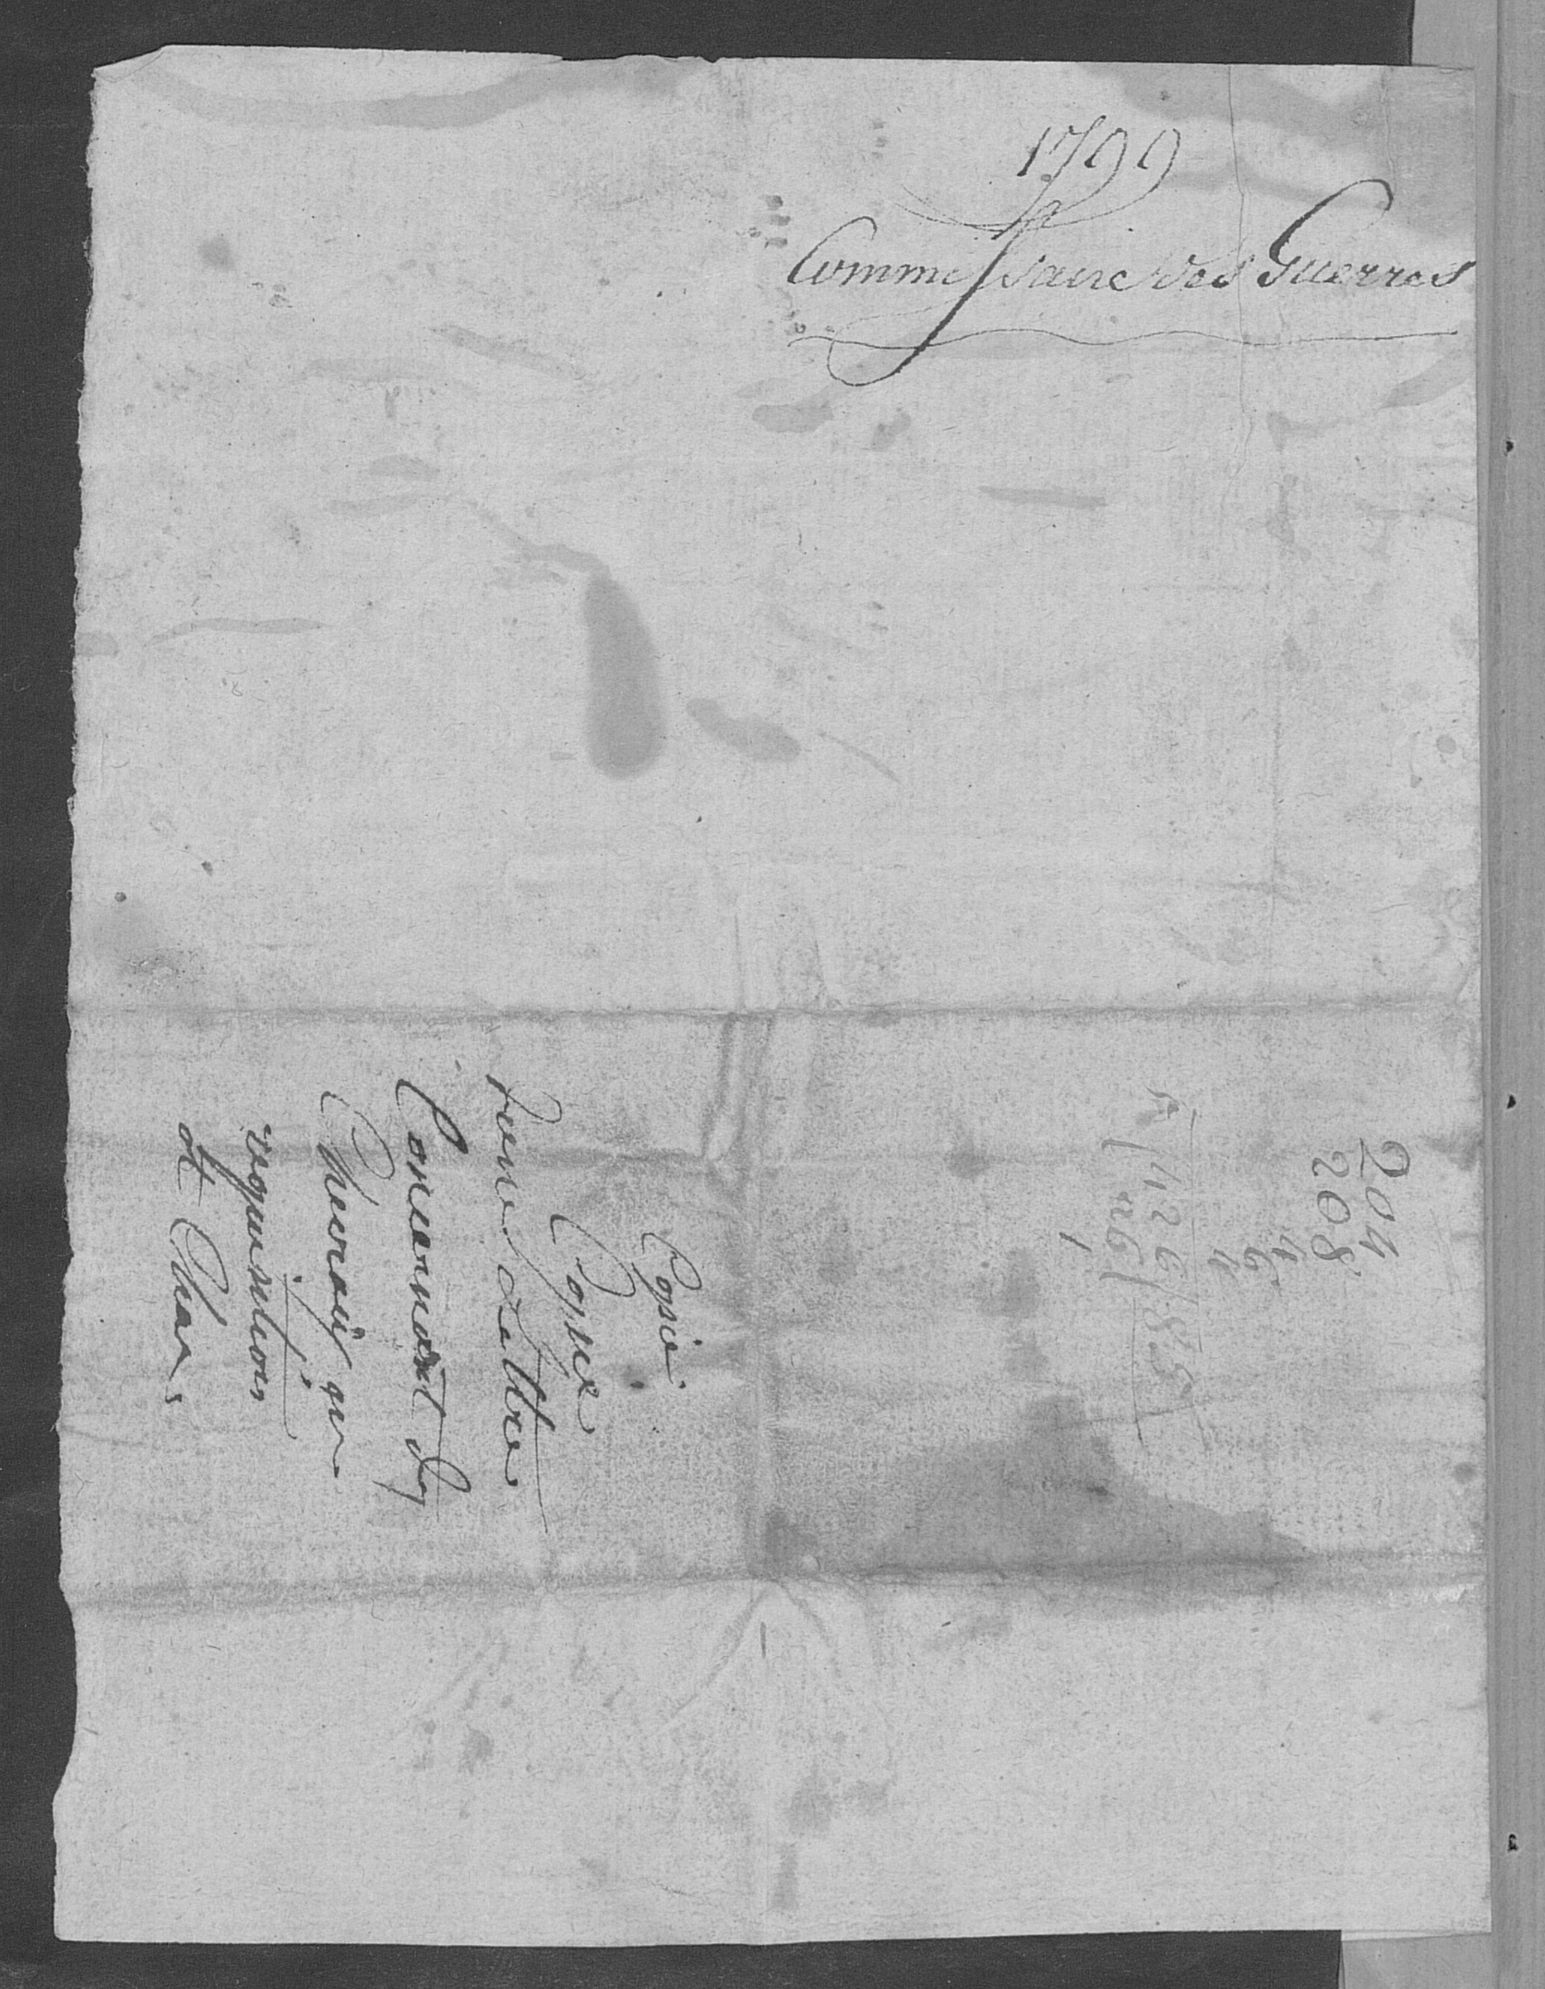 1799
Commissaire des Guerres
204
208
4
6
4
5/426/85
/26/
1
Copie
Copie
d'une Lettre
Concernant les
Chevaux que
requisition
et Char